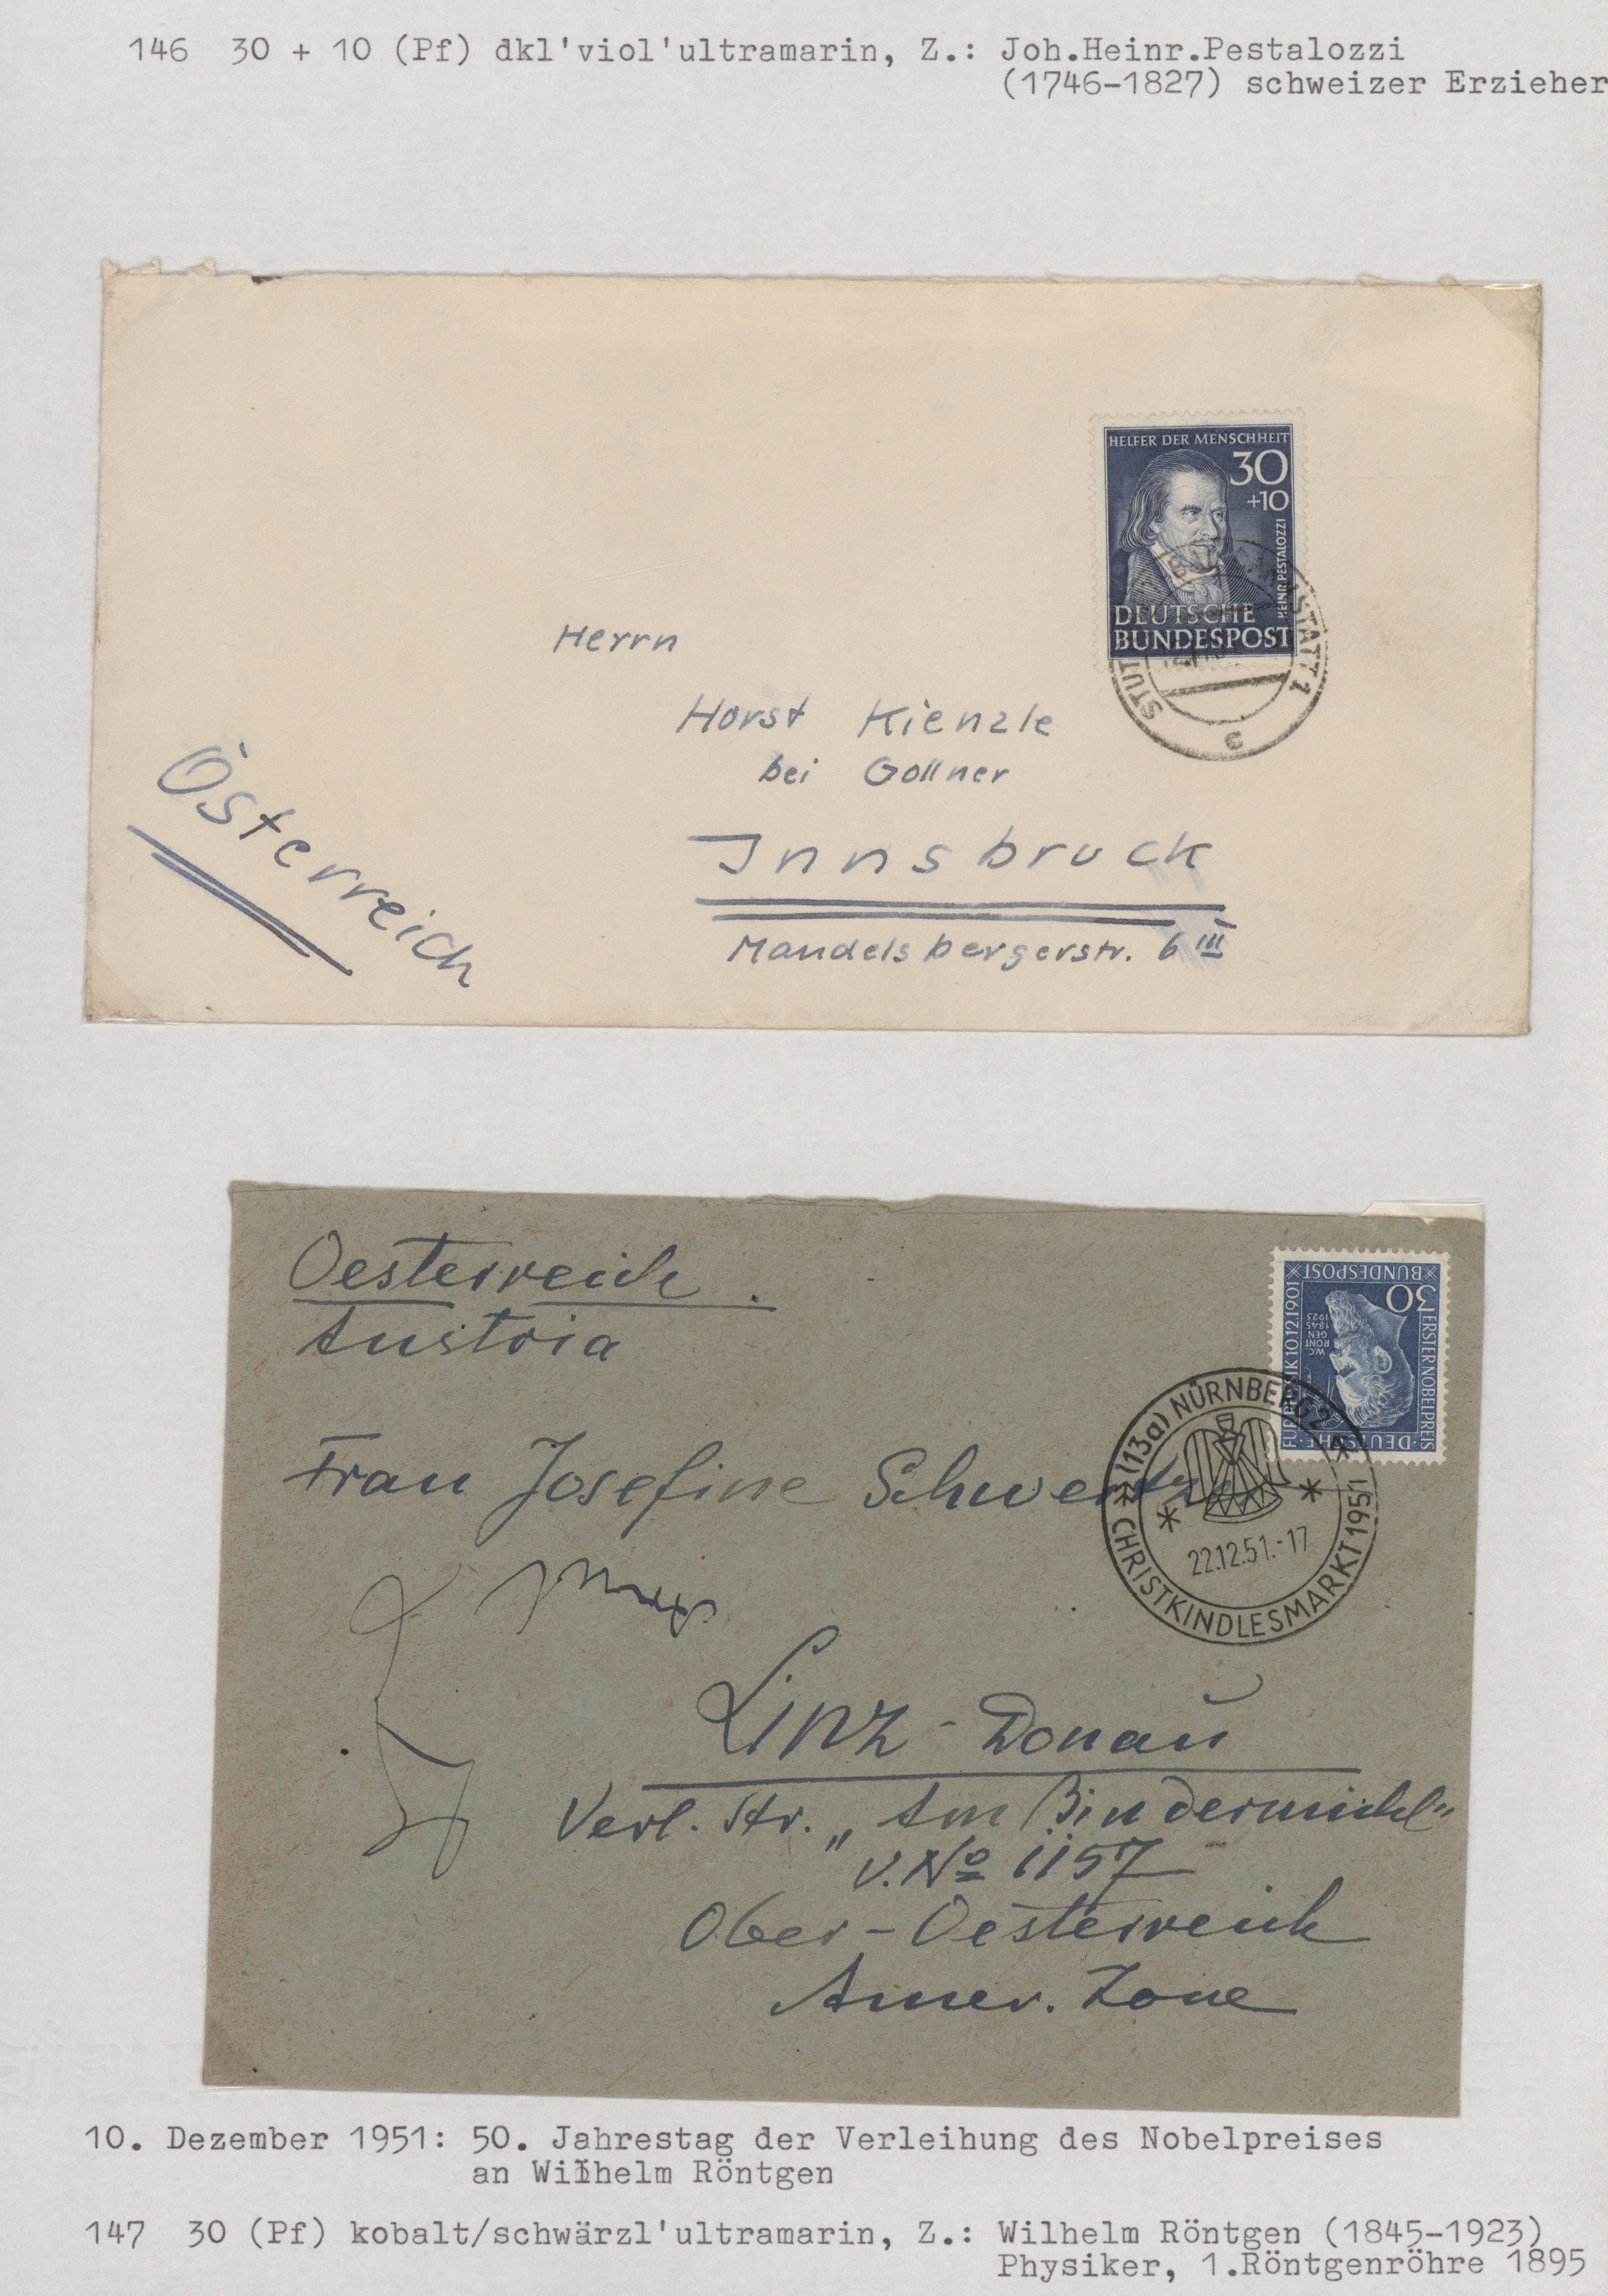 146 30 + 10 (Pf) dkl'viol'ultramarin, Z.: Joh.Heinr.Pestalozzi
(1746-1827) schweizer Erzieher
HELFER DER MENSCHHEIT
30
+10
HEINR. PESTALOZZI
DEUTSCHE
BUNDESPOST
STATT 1
c
Herrn
Horst Kienzle
bei Gollner
Innsbruck
Mandelsbergerstr. 6 III
Österreich
Oesterreich.
Austria
BUNDESPOST
30
ERSTER NOBELPREIS
FÜR PHYSIK 10.12.1901
W.C.
RÖNT
GEN
1845
1923
DEUTSCHE
(13a) NÜRNBERG 2
22.12.51.-17
CHRISTKINDLESMARKT 1951
Frau Josefine
Linz - Donau
Verl. Str. „Am Bindermichl"
V. No 1157
Ober-Oesterreich
Amer. Zone
10. Dezember 1951: 50. Jahrestag der Verleihung des Nobelpreises
an Wilhelm Röntgen
147 30 (Pf) kobalt/schwärzl'ultramarin, Z.: Wilhelm Röntgen (1845-1923)
Physiker, 1.Röntgenröhre 1895